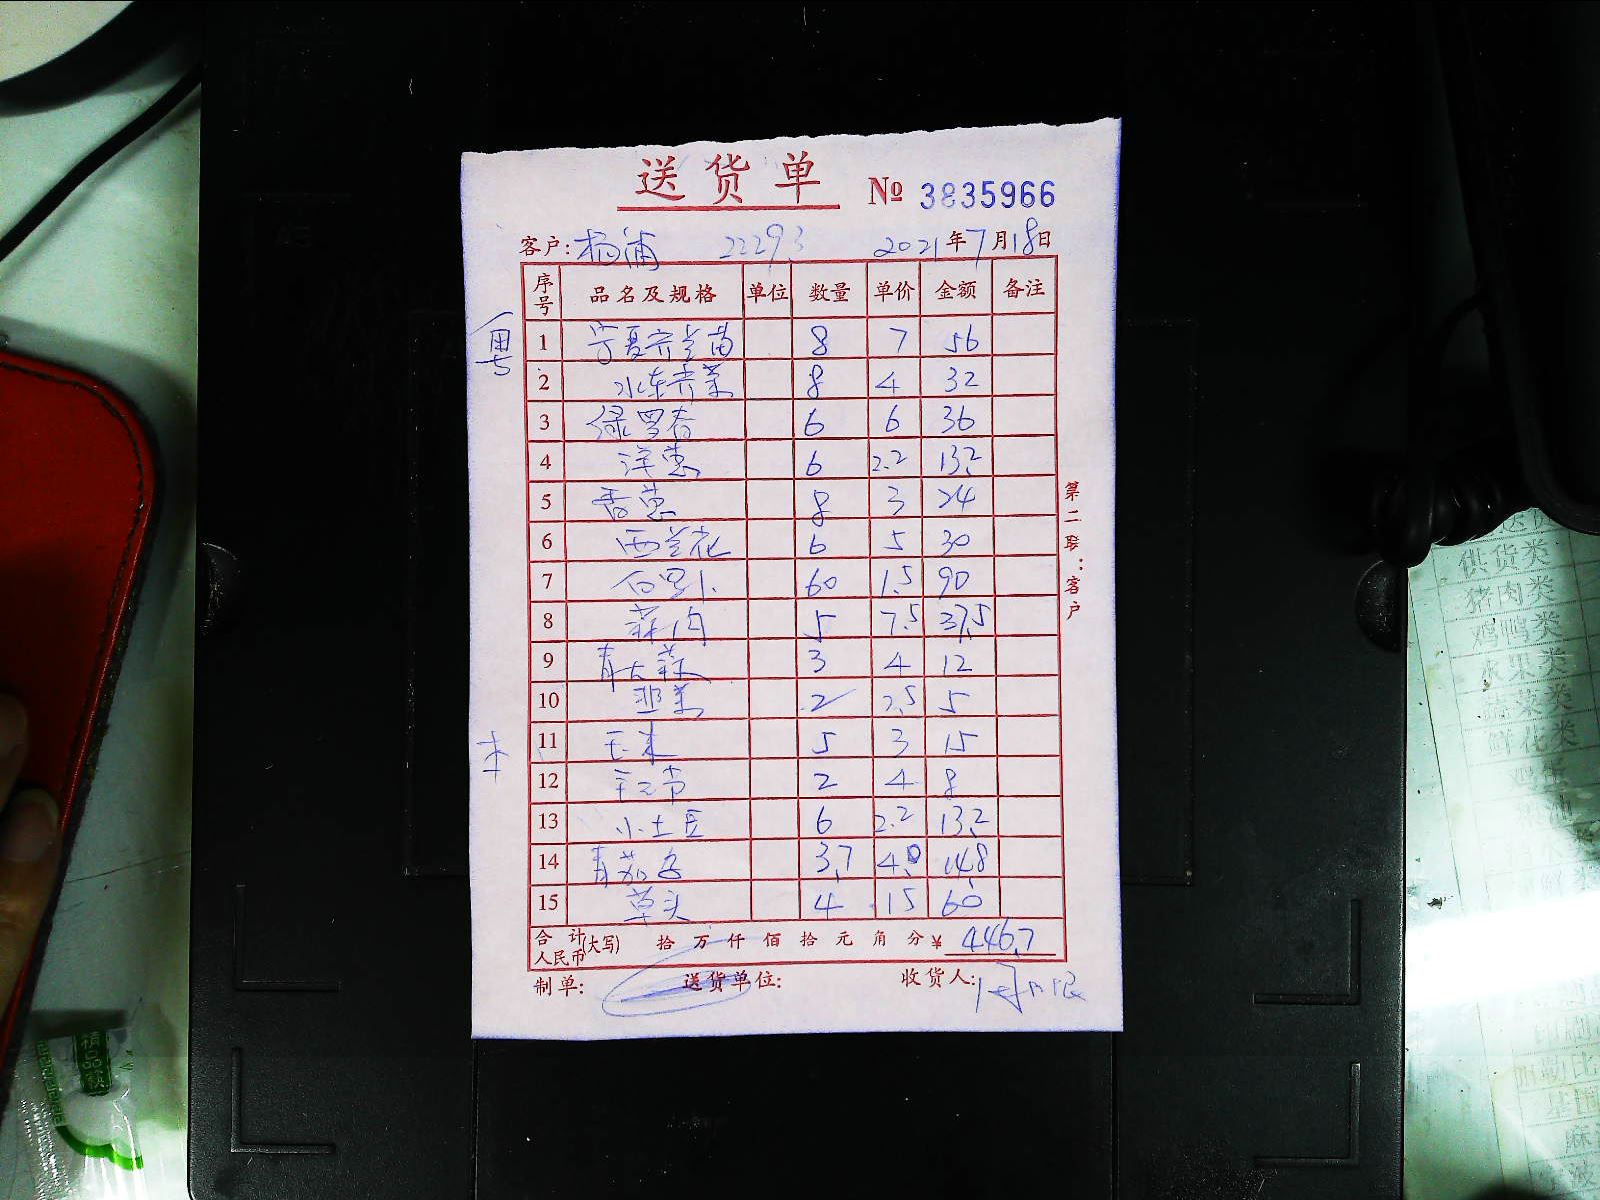 送货单 № 3835966
客户: 杨浦 22293 2021年7月18日
序号 品名及规格 单位 数量 单价 金额 备注
粤
1 宁夏芥兰苗 8 7 56
2 水东芥菜 8 4 32
3 绿萝春 6 6 36
4 洋葱 6 2.2 13.2
5 香葱 8 3 24
6 西兰花 6 5 30
7 白罗卜 60 1.5 90
8 蒜肉 5 7.5 37.5
9 青大蒜 3 4 12
10 韭菜 2 2.5 5
本
11 玉米 5 3 15
12 2 4 8
13 小土豆 6 2.2 13.2
14 青茄子 3.7 4.0 14.8
15 草头 4 15 60
合计人民币(大写) 拾 万 仟 佰 拾 元 角 分 ¥ 446.7
制单: 送货单位: 收货人:
第二联:客户
供货类
猪肉类
鸡鸭类
水果类
蔬菜类
鲜花类
精品筷